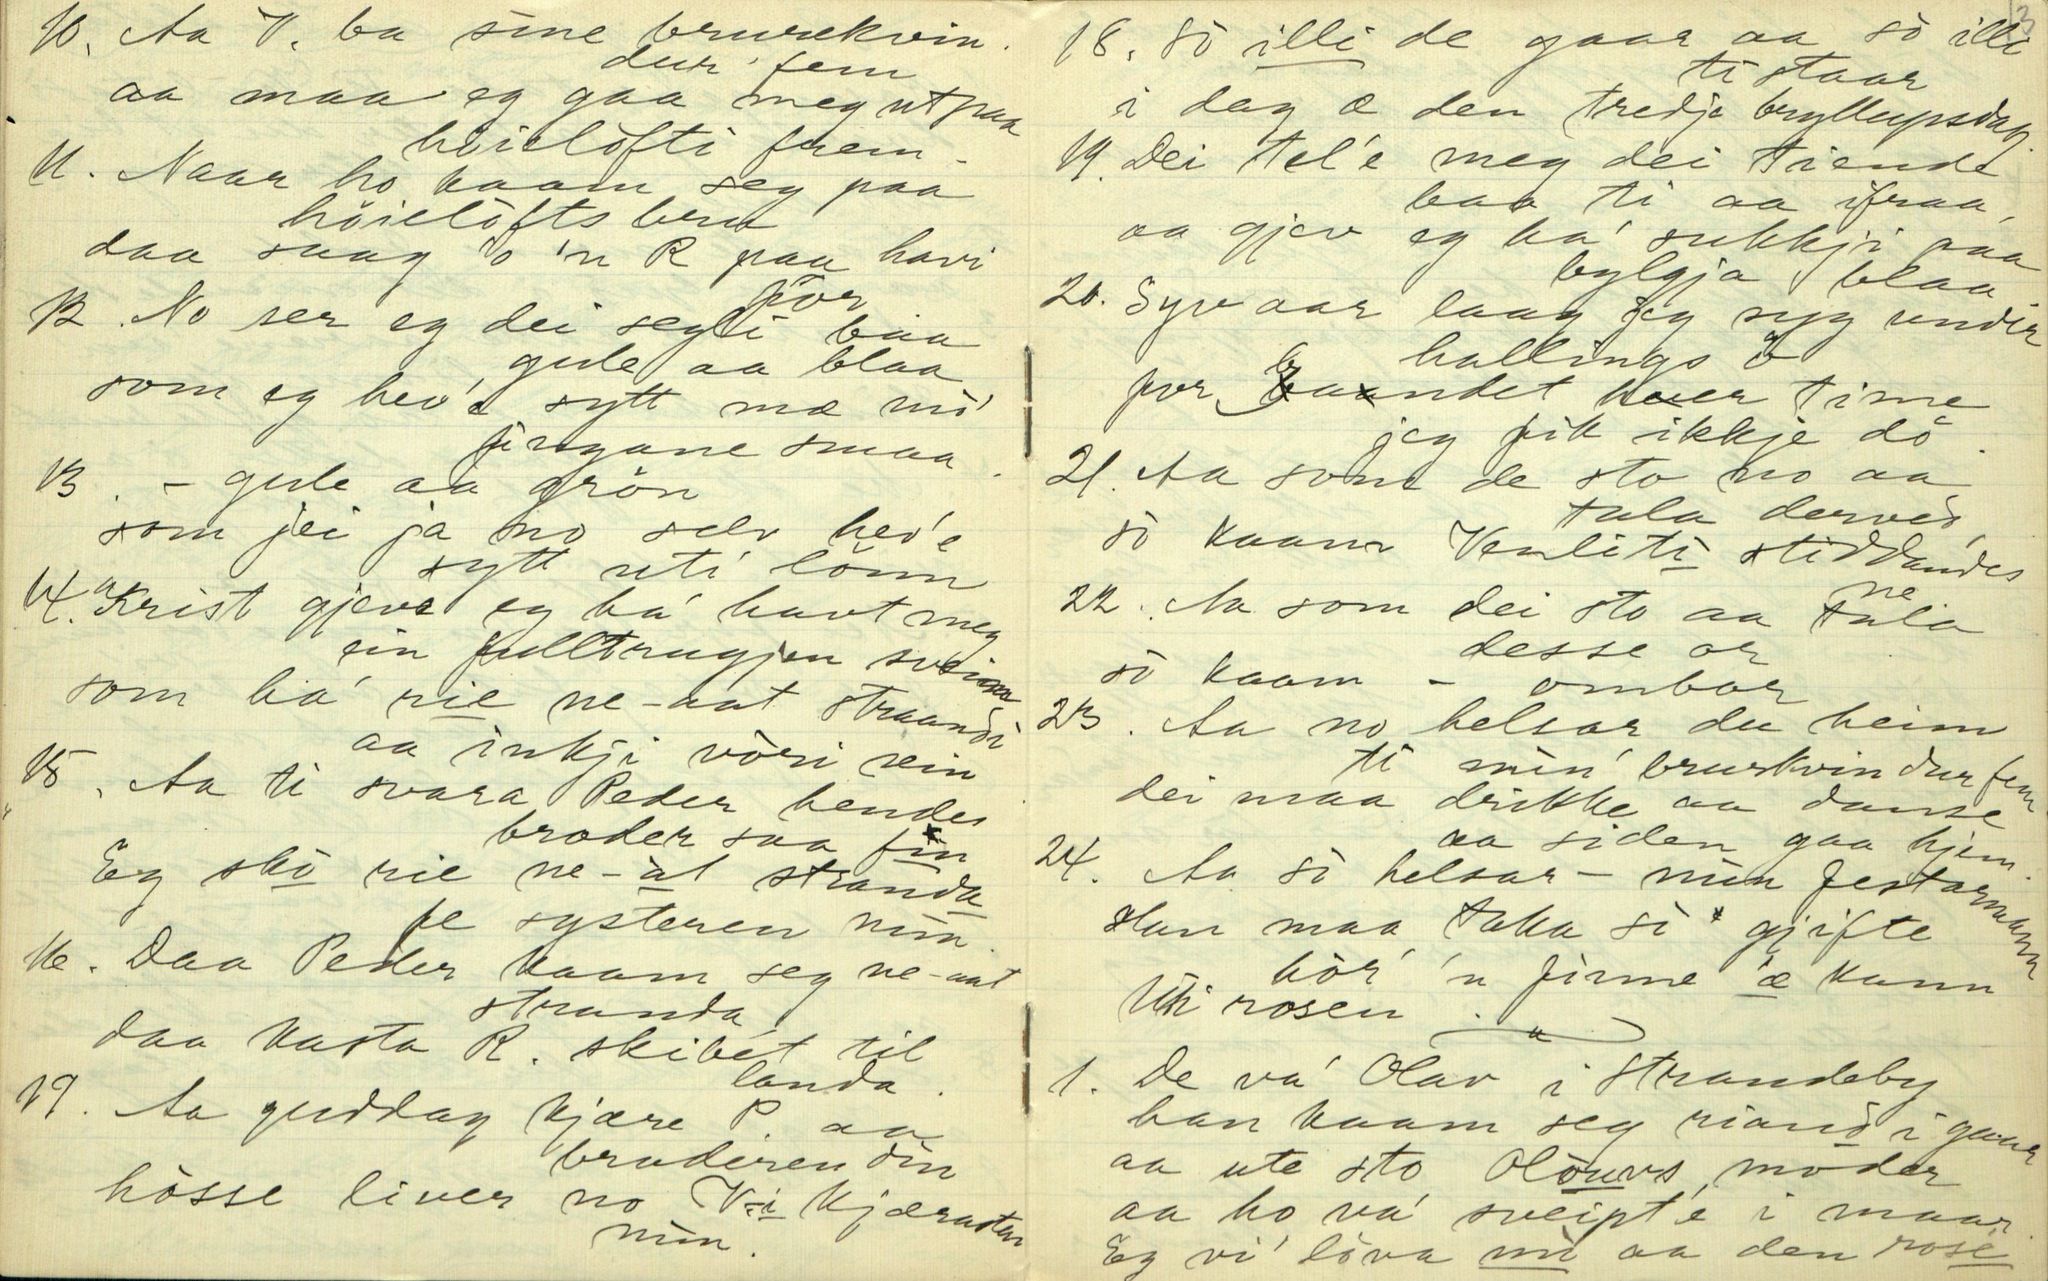 10. Aa V. ba sine brurekvin-
dur fem
aa maa eg gaa meg ut paa
höielofti frem -
11. Naar ho kaam seg paa
höielöfts bru
daa saag 'o 'n R paa havi
for
12. No ser eg dei segli baa
gule aa blaa
som eg hev'e sytt mæ mi'
fingane smaa.
13. - gule aa grön
som jei ja no selv hev'e
sytt uti lönn
14. Krist gjeve eg ha' havt meg
ein fulltrugjen svein
som ha' rie ne-aat straandi
aa inkji vöri sein
15. Aa ti svara Peder hendes
broder saa fin
Eg sko rie ne-at stranda
fe systeren min.
16. Daa Peder kaam seg ne-aat
stranda
daa kasta R. skibet til
landa.
17. Aa guddag kjære P. aa
broderen din
hösse liver no V-i kjærasten
min.
3
18. Sö illi de gaar aa sö illi
ti staar
i dag æ den tredje bryllupsdag.
19. Dei tel'e meg dei tiende
baa ti aa ifraa,
aa gjev eg ha' sukkji paa
bylgja blaa.
20. Syv aar laag jeg syg undir
hallings ö
for baandet hver time
jeg fik ikkje dö.
21. Aa som de sto no aa
tala derved,
sö kaam Venliti stiddandes
ne
22. Aa som dei sto aa tala
desse or
sö kaam - ombor
23. Aa no helsar du heim
ti min' brurkvindur fem
dei maa drikke aa danse
aa siden gaa hjem.
24. Aa sö helsar - min festarmann
Han maa taka sö gjifte
hör' 'n finne 'æ kann
Uti rosen.
1. De va' Olav i Strandeby
han kaam seg riand i gaar
aa ute sto Olöuvs moder
aa ho va' sveipt'e i maar.
Eg vi' löva mi aa den rose